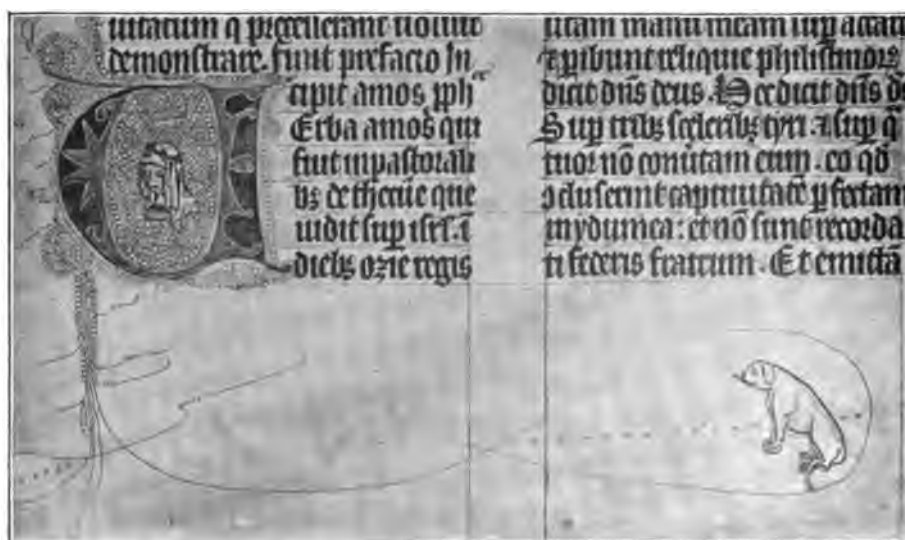 uitatum q p̃cellerant uoluit
demonstrare. finit prefacio In
cipit amos pph̃
VErba amos qui
fuit in pastorali
bȝ de thecue que
uidit sup isrl. ĩ
diebȝ ozie regis
utam manũ meam sup
⁊ pibunt relique philistinoꝝ
dicit dñs deus. Hec dicit dñs d̃s
Sup tribȝ sceleribȝ tyri. ⁊ sup q̃
tuor nõ conũtam eum. eo qd̃
ↄcluserint captiuitatẽ pfectam
in ydumea: et nõ sunt recorda
ti federis fratrum. Et emittã